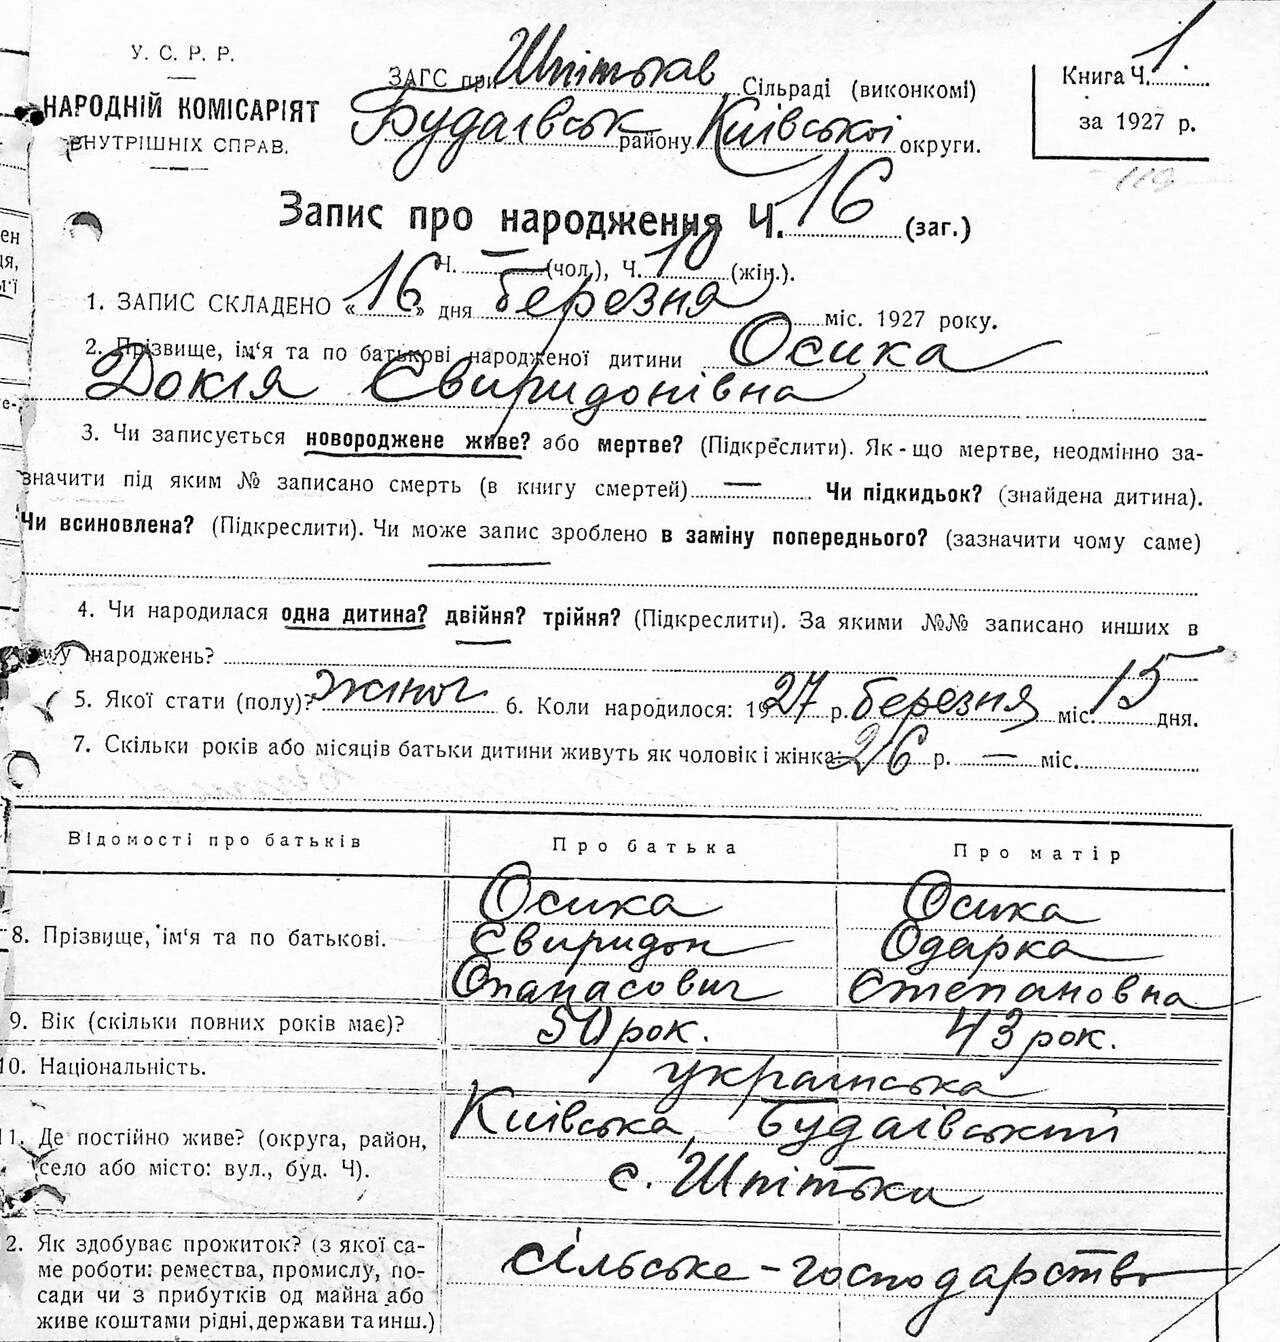 У. С. Р. Р.
НАРОДНІЙ КОМІСАРІЯТ
ВНУТРІШНІХ СПРАВ.
ЗАГС при Шпітьків Сільраді (виконкомі)
Будаївськ району Київської округи.
Книга Ч. 1
за 1927 р.
119
Запис про народження Ч. 16 (заг.)
Ч. — (чол.), Ч. 10 (жін.).
1. ЗАПИС СКЛАДЕНО «16» дня березня міс. 1927 року.
2. Прізвище, ім'я та по батькові народженої дитини Осика
Докія Євиридонівна
3. Чи записується новороджене живе? або мертве? (Підкреслити). Як-що мертве, неодмінно за-
значити під яким № записано смерть (в книгу смертей) — Чи підкидьок? (знайдена дитина).
Чи всиновлена? (Підкреслити). Чи може запис зроблено в заміну попереднього? (зазначити чому саме)
4. Чи народилася одна дитина? двійня? трійня? (Підкреслити). За якими №№ записано инших в
книгу народжень?
5. Якої стати (полу)? жіноч 6. Коли народилося: 1927 р. березня міс. 15 дня.
7. Скільки років або місяців батьки дитини живуть як чоловік і жінка: 26 р. — міс.
Відомості про батьків Про батька Про матір
8. Прізвище, ім'я та по батькові.
Осика Осика
Євиридон Одарка
Опанасович Степановна
9. Вік (скільки повних років має)? 50 рок. 43 рок.
10. Національність. українська
11. Де постійно живе? (округа, район,
село або місто: вул., буд. Ч).
Київська, Будаївський
с. Шпітька
2. Як здобуває прожиток? (з якої са-
ме роботи: ремества, промислу, по-
сади чи з прибутків од майна або
живе коштами рідні, держави та инш.)
сільське-господарство